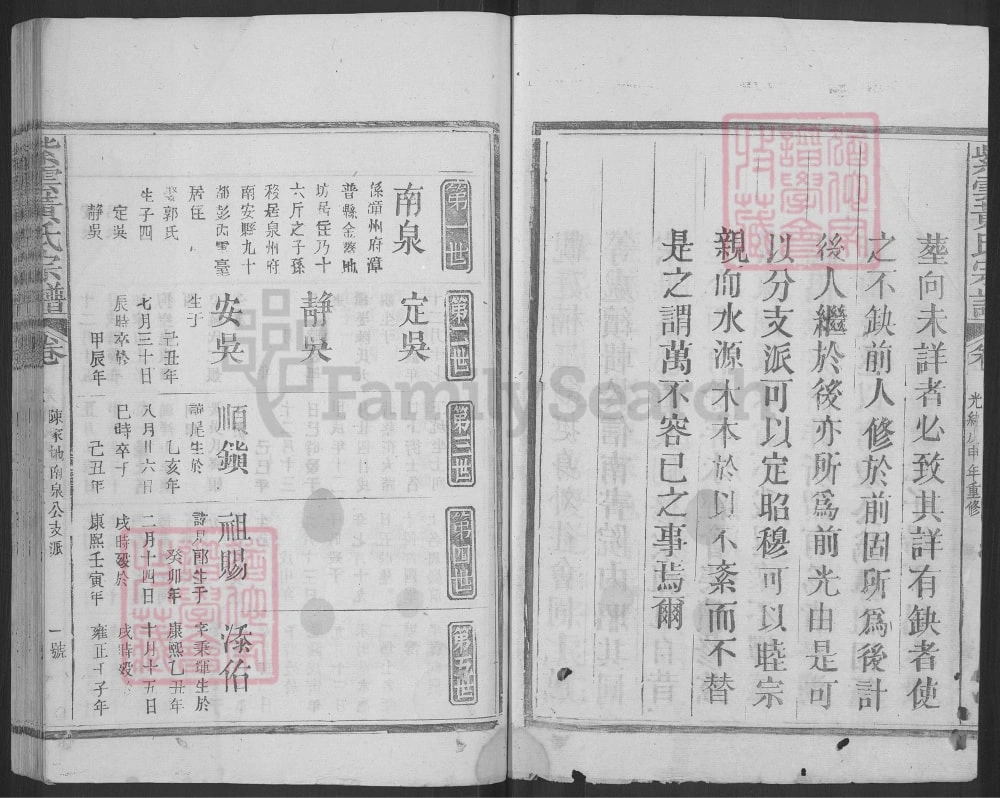 葬向未詳者必致其詳有缺者使
之不缺前人修於前固所爲後計
後人繼於後亦所爲前光由是可
以分支派可以定昭穆可以睦宗
親而水源木本於以不紊而不替
是之謂萬不容已之事焉爾
光緒 申年重修
第一世
南泉
係漳州府漳
普縣金 地
坊 住乃十
六斤之子孫
移居泉州府
南安縣九十
都彭內雲臺
居住
娶郭氏
生子四
定吳
靜吳
第二世
定吳
靜吳
安吳
生于
己丑年
七月三十日
辰時卒於
甲辰年
第三世
順鎖
諱 生於
乙亥年
八月廿六日
巳時卒于
己丑年
第四世
祖賜
諱 郎生于
癸卯年
二月十四日
戌時歿於
康熙壬寅年
第五世
添佑
字秉 生於
康熙乙丑年
十月十五日
戌時歿
雍正 子年
紫雲黃氏宗譜
卷
陳家 南泉公支派
一號
FamilySearch